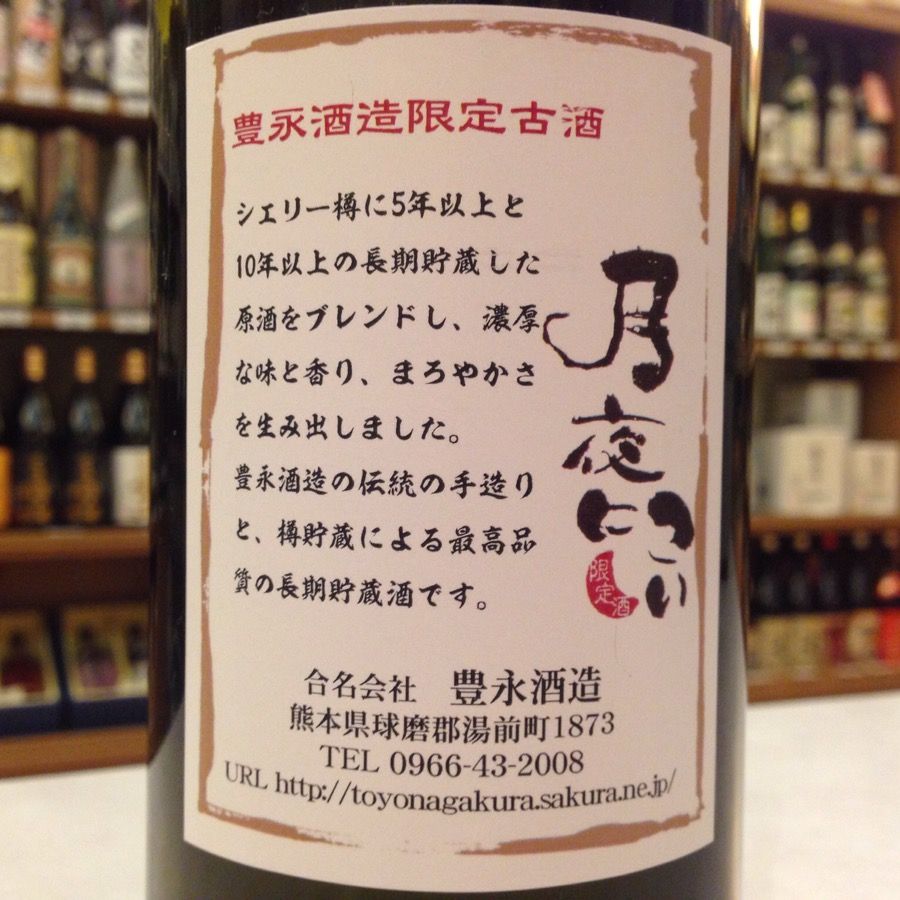 豊永酒造限定古酒
シェリー樽に5年以上と
10年以上の長期貯蔵した
原酒をブレンドし、濃厚
な味と香り、まろやかさ
を生み出しました。
豊永酒造の伝統の手造り
と、樽貯蔵による最高品
質の長期貯蔵酒です。
月夜にこい
限定酒
合名会社 豊永酒造
熊本県球磨郡湯前町1873
TEL 0966-43-2008
URL http://toyonagakura.sakura.ne.jp/